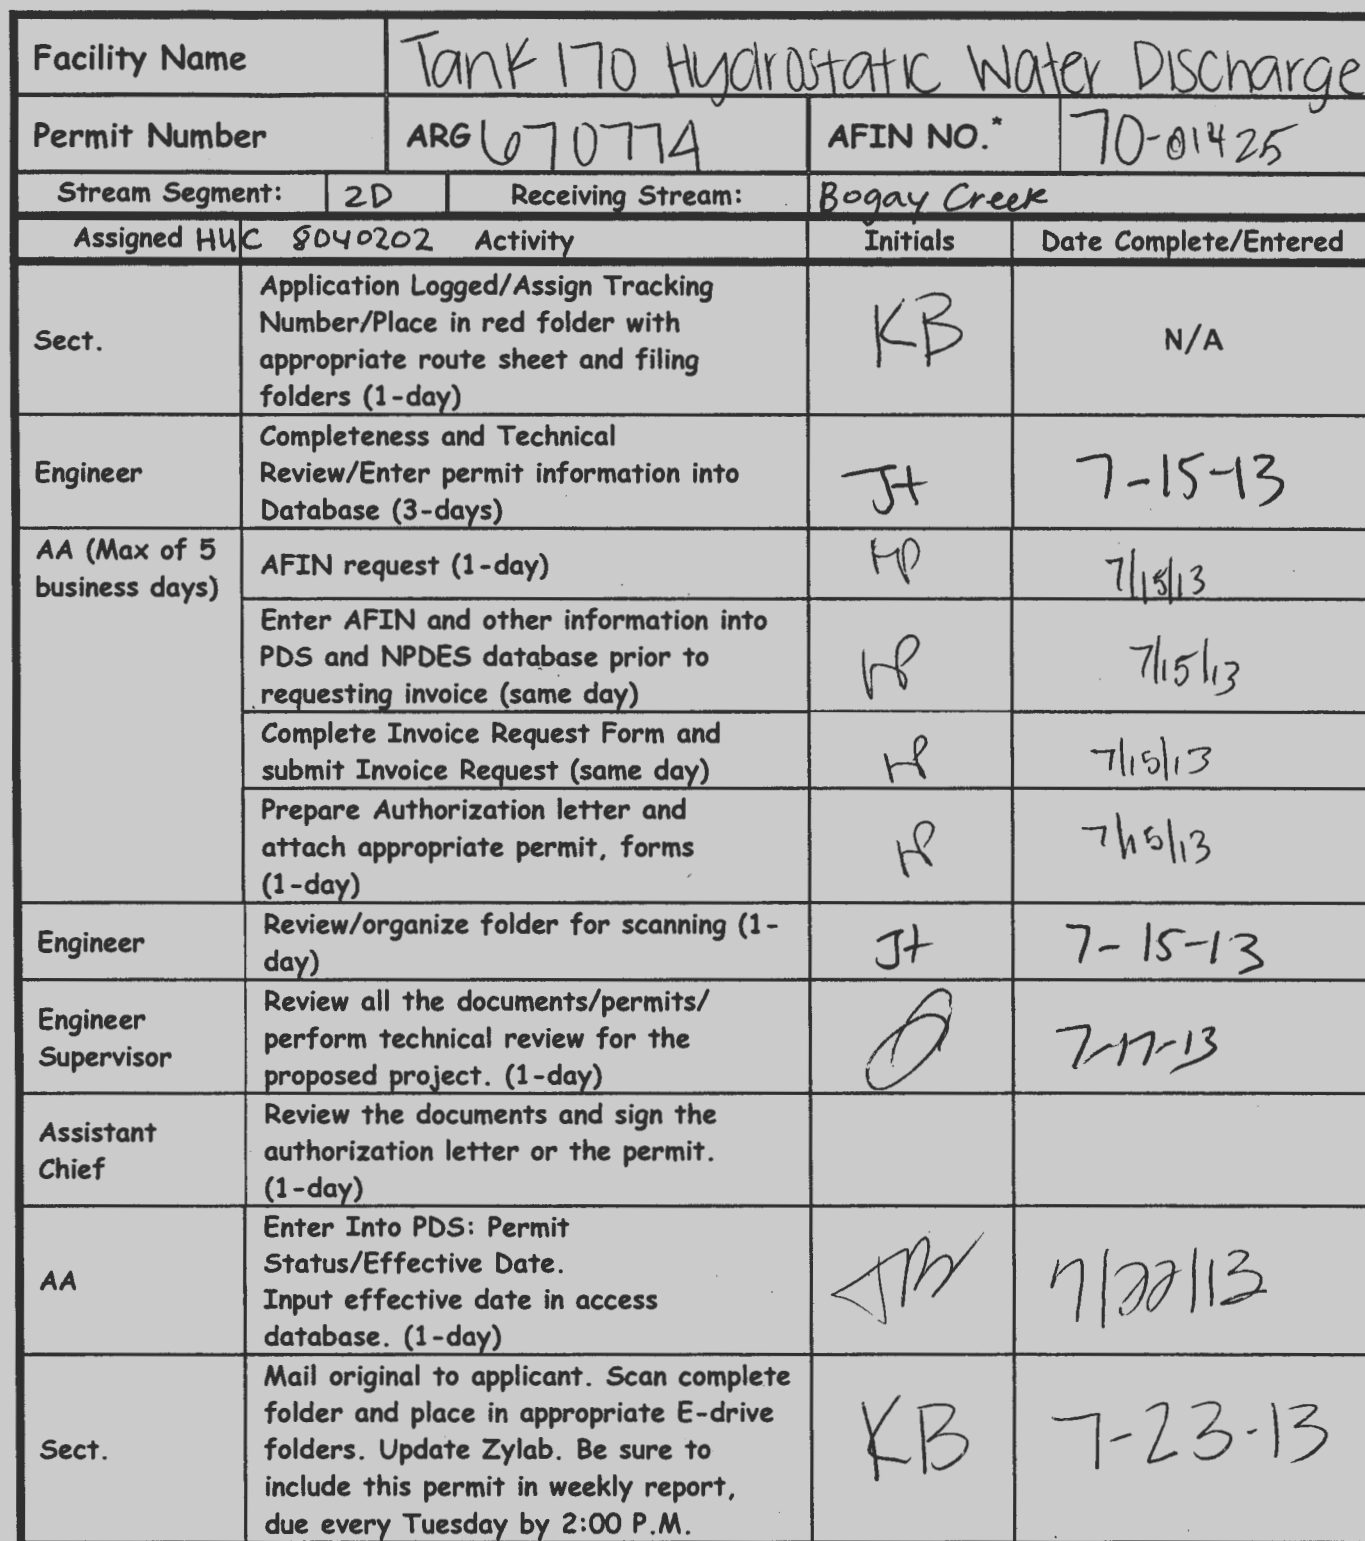 Facility Name Tank 170 Hydrostatic Water Discharge
Permit Number ARG 670774 AFIN NO.* 70-01425
Stream Segment: 2D Receiving Stream: Bogay Creek
Assigned HUC 8040202 Activity Initials Date Complete/Entered
Application Logged/Assign Tracking
Number/Place in red folder with
Sect. appropriate route sheet and filing KB N/A
folders (1-day)
Completeness and Technical
Engineer Review/Enter permit information into Jt 7-15-13
Database (3-days)
AA (Max of 5
business days)
AFIN request (1-day) HP 7/15/13
Enter AFIN and other information into
PDS and NPDES database prior to HP 7/15/13
requesting invoice (same day)
Complete Invoice Request Form and
submit Invoice Request (same day) HP 7/15/13
Prepare Authorization letter and
attach appropriate permit, forms HP 7/15/13
(1-day)
Engineer Review/organize folder for scanning (1- Jt 7-15-13
day)
Engineer Review all the documents/permits/
Supervisor perform technical review for the 7-17-13
proposed project. (1-day)
Assistant Review the documents and sign the
Chief authorization letter or the permit.
(1-day)
Enter Into PDS: Permit
Status/Effective Date.
AA Input effective date in access 7/22/13
database. (1-day)
Mail original to applicant. Scan complete
folder and place in appropriate E-drive
Sect. folders. Update Zylab. Be sure to KB 7-23-13
include this permit in weekly report,
due every Tuesday by 2:00 P.M.